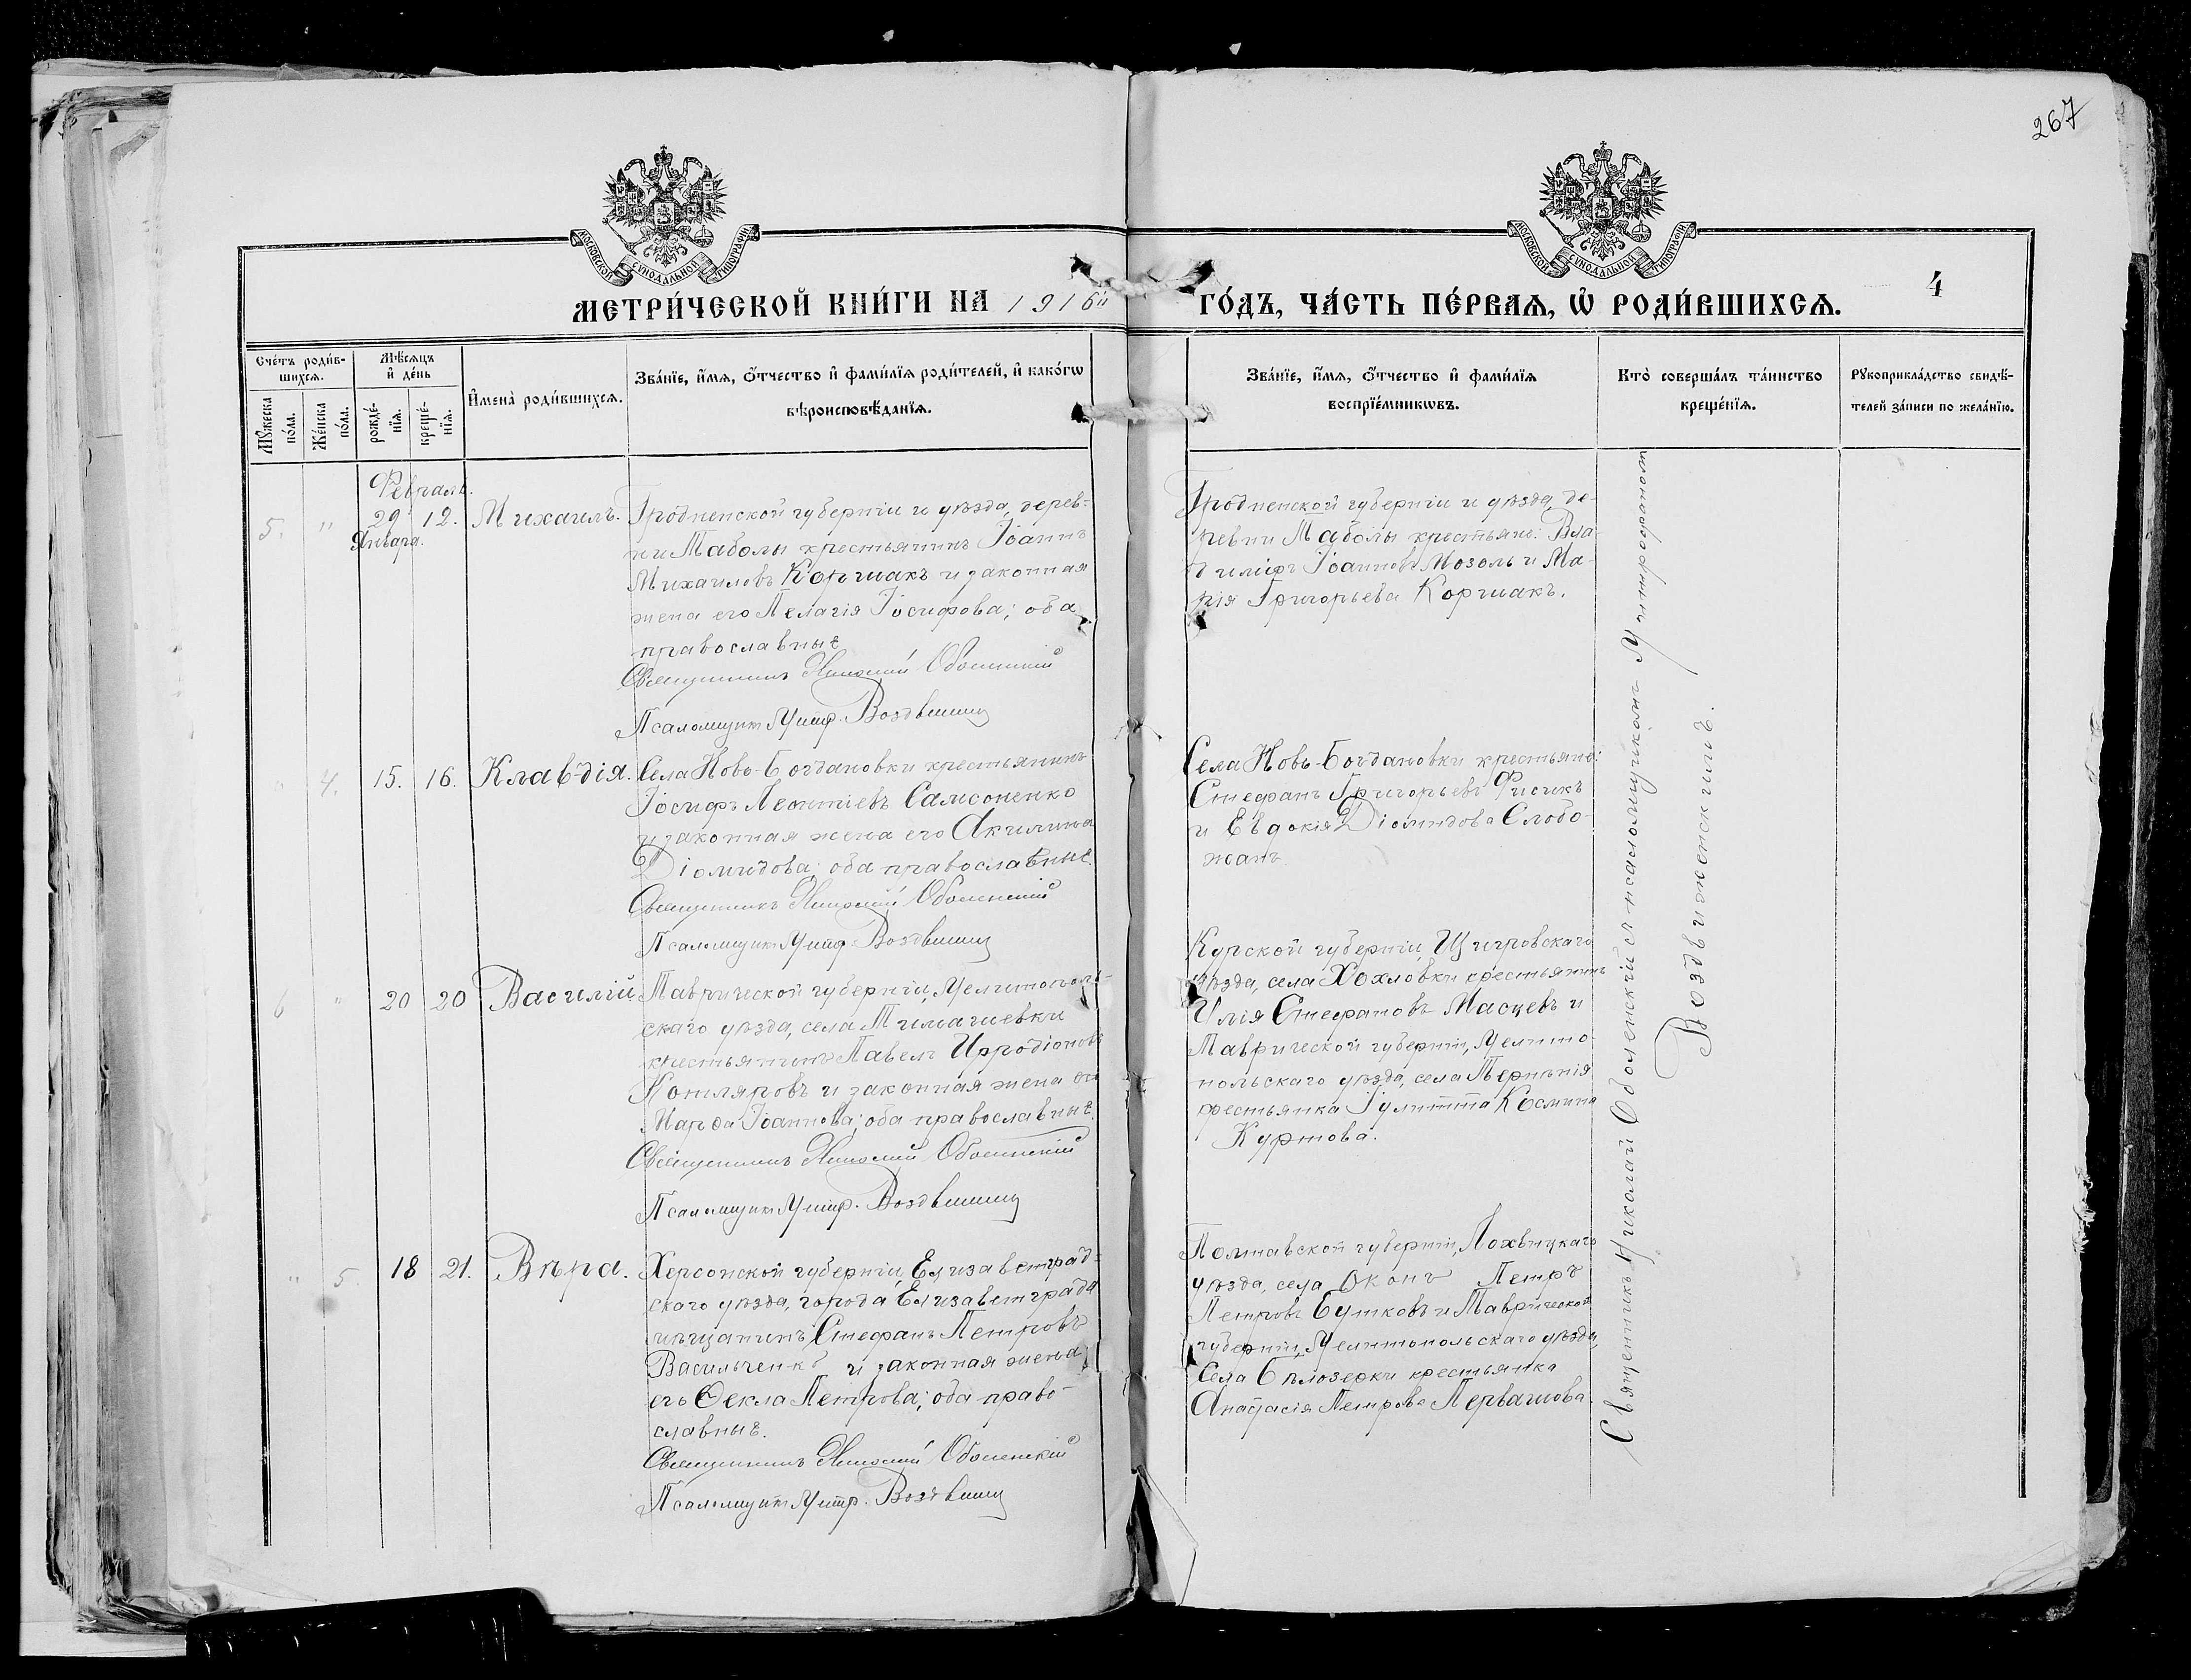 267
МОСКОВСКОЙ СѴНОДАЛЬНОЙ ТИПОГРАФІИ
МОСКОВСКОЙ СѴНОДАЛЬНОЙ ТИПОГРАФІИ
МЕТРИ́ЧЕСКОЙ КНИ́ГИ НА 1916й
ГО́ДЪ, ЧА́СТЬ ПЕ́РВАѦ, Ѡ҆ РОДИ́ВШИХСѦ.
4
Сче́тъ роди́в-
шихсѧ.
Мꙋ́жеска по́ла.
Же́нска по́ла.
Мѣ́сѧцъ и҆ де́нь
рожде́-нїѧ.
креще́-нїѧ.
И҆мена̀ роди́вшихсѧ.
Зва́нїе, и҆́мѧ, ѻ҆́тчество и҆ фами́лїѧ роди́телей, и҆ како́гѡ
вѣроисповѣ́данїѧ.
Зва́нїе, и҆́мѧ, ѻ҆́тчество и҆ фами́лїѧ
воспрїе́мникѡвъ.
Кто̀ соверша́лъ та́инство
креще́нїѧ.
Рꙋкоприкла́дство свидѣ́-
телей за́писи по жела́нїю.
Февраль.
5. " 29 12. Михаилъ.
Января.
Гродненской губерніи и уѣзда, дерев-
ни Маболы крестьянинъ Іоаннъ
Михаиловъ Коршакъ и законная
жена его Пелагія Іосифова; оба
православные
Священникъ Николай Оболенскій
Псаломщикъ Митр. Воздвиженскій
Гродненской губерніи и уѣзда, де-
ревни Маболы крестьяне: Вла-
диміръ Іоанновъ Мозоль и Ма-
рія Григорьева Коршакъ.
" 4. 15. 16. Клавдія.
Села Ново-Богдановки крестьянинъ
Іосифъ Леонтіевъ Самсоненко
и законная жена его Акилина
Діомидова; оба православные.
Священникъ Николай Оболенскій
Псаломщикъ Митр. Воздвиженскій
Села Ново-Богдановки крестьяне:
Стефанъ Григорьевъ Фисикъ
и Евдокія Діомидова Слобо-
жанъ.
6 " 20 20 Василій
Таврической губерніи, Мелитополь-
скаго уѣзда, села Тимашевки
крестьянинъ Павелъ Иродіоновъ
Котляровъ и законная жена его
Марѳа Іоаннова; оба православные.
Священникъ Николай Оболенскій
Псаломщикъ Митр. Воздвиженскій
Курской губерніи, Щигровскаго
уѣзда, села Хохловки крестьянинъ
Илія Стефановъ Масцевъ и
Таврической губерніи, Мелито-
польскаго уѣзда, села Терпѣнія
крестьянка Іулитта Космина
Куртова.
" 5 18 21. Вѣра.
Херсонской губерніи, Елизаветград-
скаго уѣзда, города Елизаветграда
мѣщанинъ Стефанъ Петровъ
Васильченко и законная жена
его Ѳекла Петрова; оба право-
славные.
Священникъ Николай Оболенскій
Псаломщикъ Митр. Воздвиженскій
Полтавской губерніи, Лохвицкаго
уѣзда, села Оконъ Петръ
Петровъ Бутковъ и Таврической
губерніи, Мелитопольскаго уѣзда,
села Бѣлозерки крестьянка
Анастасія Петрова Первашова.
Священникъ Николай Оболенскій съ псаломщикомъ Митрофаномъ
Воздвиженскимъ.